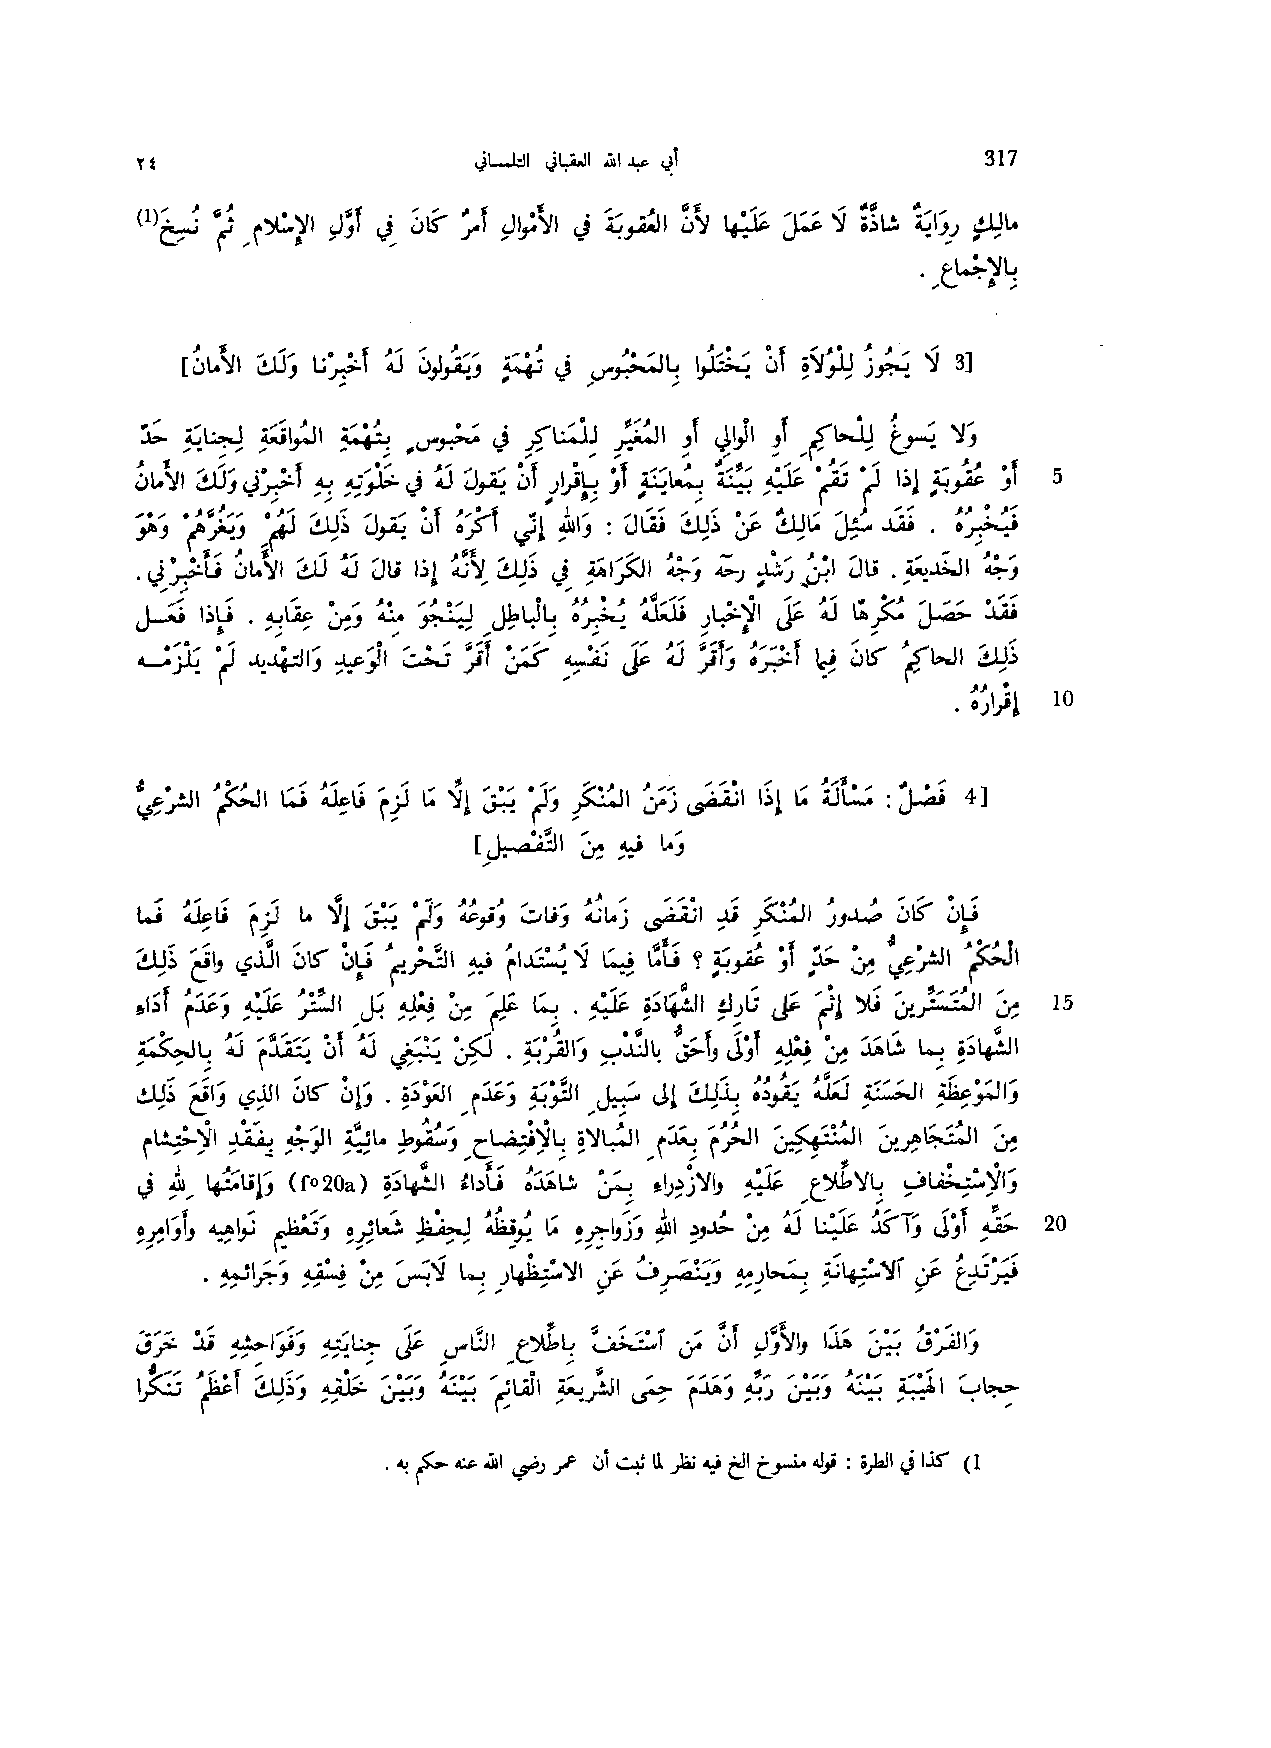 317 أبي عبد الله العقباني التلمساني ٢٤
مالِكٍ رِوَايَةٌ شاذَّةٌ لَا عَمَلَ عَلَيْها لأنَّ العُقوبَةَ في الأمْوالِ أمرٌ كَانَ في أوَّلِ الإسْلامِ ثُمَّ نُسِخَ(1)
بِالإجْماعِ .
[3 لَا يَجُوزُ لِلْوُلَاةِ أنْ يَخْتَلُوا بِالمَحْبُوسِ في تُهْمَةٍ وَيَقُولونَ لَهُ أخْبِرْنا وَلَكَ الأمانُ]
وَلا يَسوغُ لِلْحاكِمِ أو الْوالِي أو المُغَيِّرِ لِلْمَناكِرِ في مَحْبوسٍ بِتُهْمَةِ المُواقَعَةِ لِجِنايَةِ حَدّ
5 أوْ عُقوبَةٍ إذا لَمْ تَقُمْ عَلَيْهِ بَيِّنَةٌ بِمُعايَنَةٍ أوْ بِإقْرارٍ أنْ يَقولَ لَهُ في خَلْوَتِهِ بِهِ أخْبِرْني وَلَكَ الأمانُ
فَيُخْبِرُهُ . فَقَد سُئِلَ مَالِكٌ عَنْ ذَلِكَ فَقَالَ : وَاللهِ إنّي أكْرَهُ أنْ يَقولَ ذَلِكَ لَهُمْ وَيَغُرَّهُمْ وَهْوَ
وَجْهُ الخَديعَةِ . قالَ ابْنُ رشْدٍ رحه وَجْهُ الكَرَاهَةِ في ذَلِكَ لِأنَّهُ إذا قالَ لَهُ لَكَ الأمانُ فَأخْبِرْني .
فَقَدْ حَصَلَ مُكْرِهًا لَهُ عَلَى الإخْبارِ فَلَعَلَّهُ يُخْبِرُهُ بِالْباطِلِ لِيَنْجُوَ مِنْهُ وَمِنْ عِقابِهِ . فَإذا فَعَـل
ذَلِكَ الحاكِمُ كانَ فِيما أخْبَرَهُ وَأقَرَّ لَهُ عَلَى نَفْسِهِ كَمَنْ أقَرَّ تَحْتَ الْوَعيدِ وَالتهْديدِ لَمْ يَلْزَمْـه
10 إقْرارُهُ .
[4 فَصْلٌ : مَسْألَةُ مَا إذَا انْقَضَى زَمَنُ المُنْكَرِ وَلَمْ يَبْقَ إلَّا مَا لَزِمَ فَاعِلَهُ فَمَا الحُكْمُ الشرْعِيُّ
وَما فيهِ مِنَ التَّفْصيلِ]
فَإنْ كَانَ صُدورُ المُنْكَرِ قَدِ انْقَضَى زَمانُهُ وَفاتَ وُقوعُهُ وَلَمْ يَبْقَ إلَّا ما لَزِمَ فَاعِلَهُ فَما
الْحُكْمُ الشرْعِيُّ مِنْ حَدٍّ أوْ عُقوبَةٍ ؟ فَأمَّا فِيمَا لَا يُسْتَدامُ فيهِ التَّحْريمُ فَإنْ كانَ الَّذي واقَعَ ذَلِكَ
15 مِنَ الْمُتَسَتِّرينَ فَلا إثْمَ عَلى تَارِكِ الشَّهَادَةِ عَلَيْهِ . بِمَا عَلِمَ مِنْ فِعْلِهِ بَلِ السَّتْرُ عَلَيْهِ وَعَدَمُ أدَاءِ
الشَّهادَةِ بِما شَاهَدَ مِنْ فِعْلِهِ أوْلَى وأحَقُّ بالنَّدْبِ وَالقُرْبَةِ . لَكِنْ يَنْبَغِي لَهُ أنْ يَتَقَدَّمَ لَهُ بِالحِكْمَةِ
وَالمَوْعِظَةِ الحَسَنَةِ لَعَلَّهُ يَقُودُهُ بِذَلِكَ إلى سَبيلِ التَّوْبَةِ وَعَدَمِ العَوْدَةِ . وَإنْ كَانَ الذي وَاقَعَ ذَلِك
مِنَ المُتَجَاهِرينَ المُنْتَهِكينَ الحُرُمَ بِعَدَمِ المُبالاةِ بِالْاِفْتِضاحِ وَسُقُوطِ مائِيَّةِ الوَجْهِ بِفَقْدِ الْاِحْتِشام
وَالْاِسْتِخْفافِ بِالاطِّلاعِ عَلَيْهِ والازْدِراءِ بِمَنْ شاهَدَهُ فَأداءُ الشَّهادَةِ (f°20a) وَإقامَتُها لِلهِ في
20 حَقِّهِ أوْلَى وَآكَدُ عَلَيْنا لَهُ مِنْ حُدودِ اللهِ وَزَواجِرِهِ مَا يُوقِظُهُ لِحِفْظِ شَعائِرِهِ وَتَعْظيمِ نَواهيهِ وأوَامِرِهِ
فَيَرْتَدِعُ عَنِ الْاسْتِهانَةِ بِمَحارِمِهِ وَيَنْصَرِفُ عَنِ الاسْتِظْهارِ بِما لَابَسَ مِنْ فِسْقِهِ وَجَرائِمِهِ .
وَالفَرْقُ بَيْنَ هَذَا والأوَّلِ أنَّ مَن آسْتَخَفَّ باطِّلاعِ النَّاسِ عَلَى جِنايَتِهِ وَفَوَاحِشِهِ قَدْ خَرَقَ
حِجابَ الهَيْبَةِ بَيْنَهُ وَبَيْنَ رَبِّهِ وَهَدَمَ حِمَى الشَّريعَةِ الْقائِمَ بَيْنَهُ وَبَيْنَ خَلْقِهِ وَذَلِكَ أعْظَمُ تَنَكُّرا
1) كذا في الطرة : قوله منسوخ الخ فيه نظر لما ثبت أن عمر رضي الله عنه حكم به .